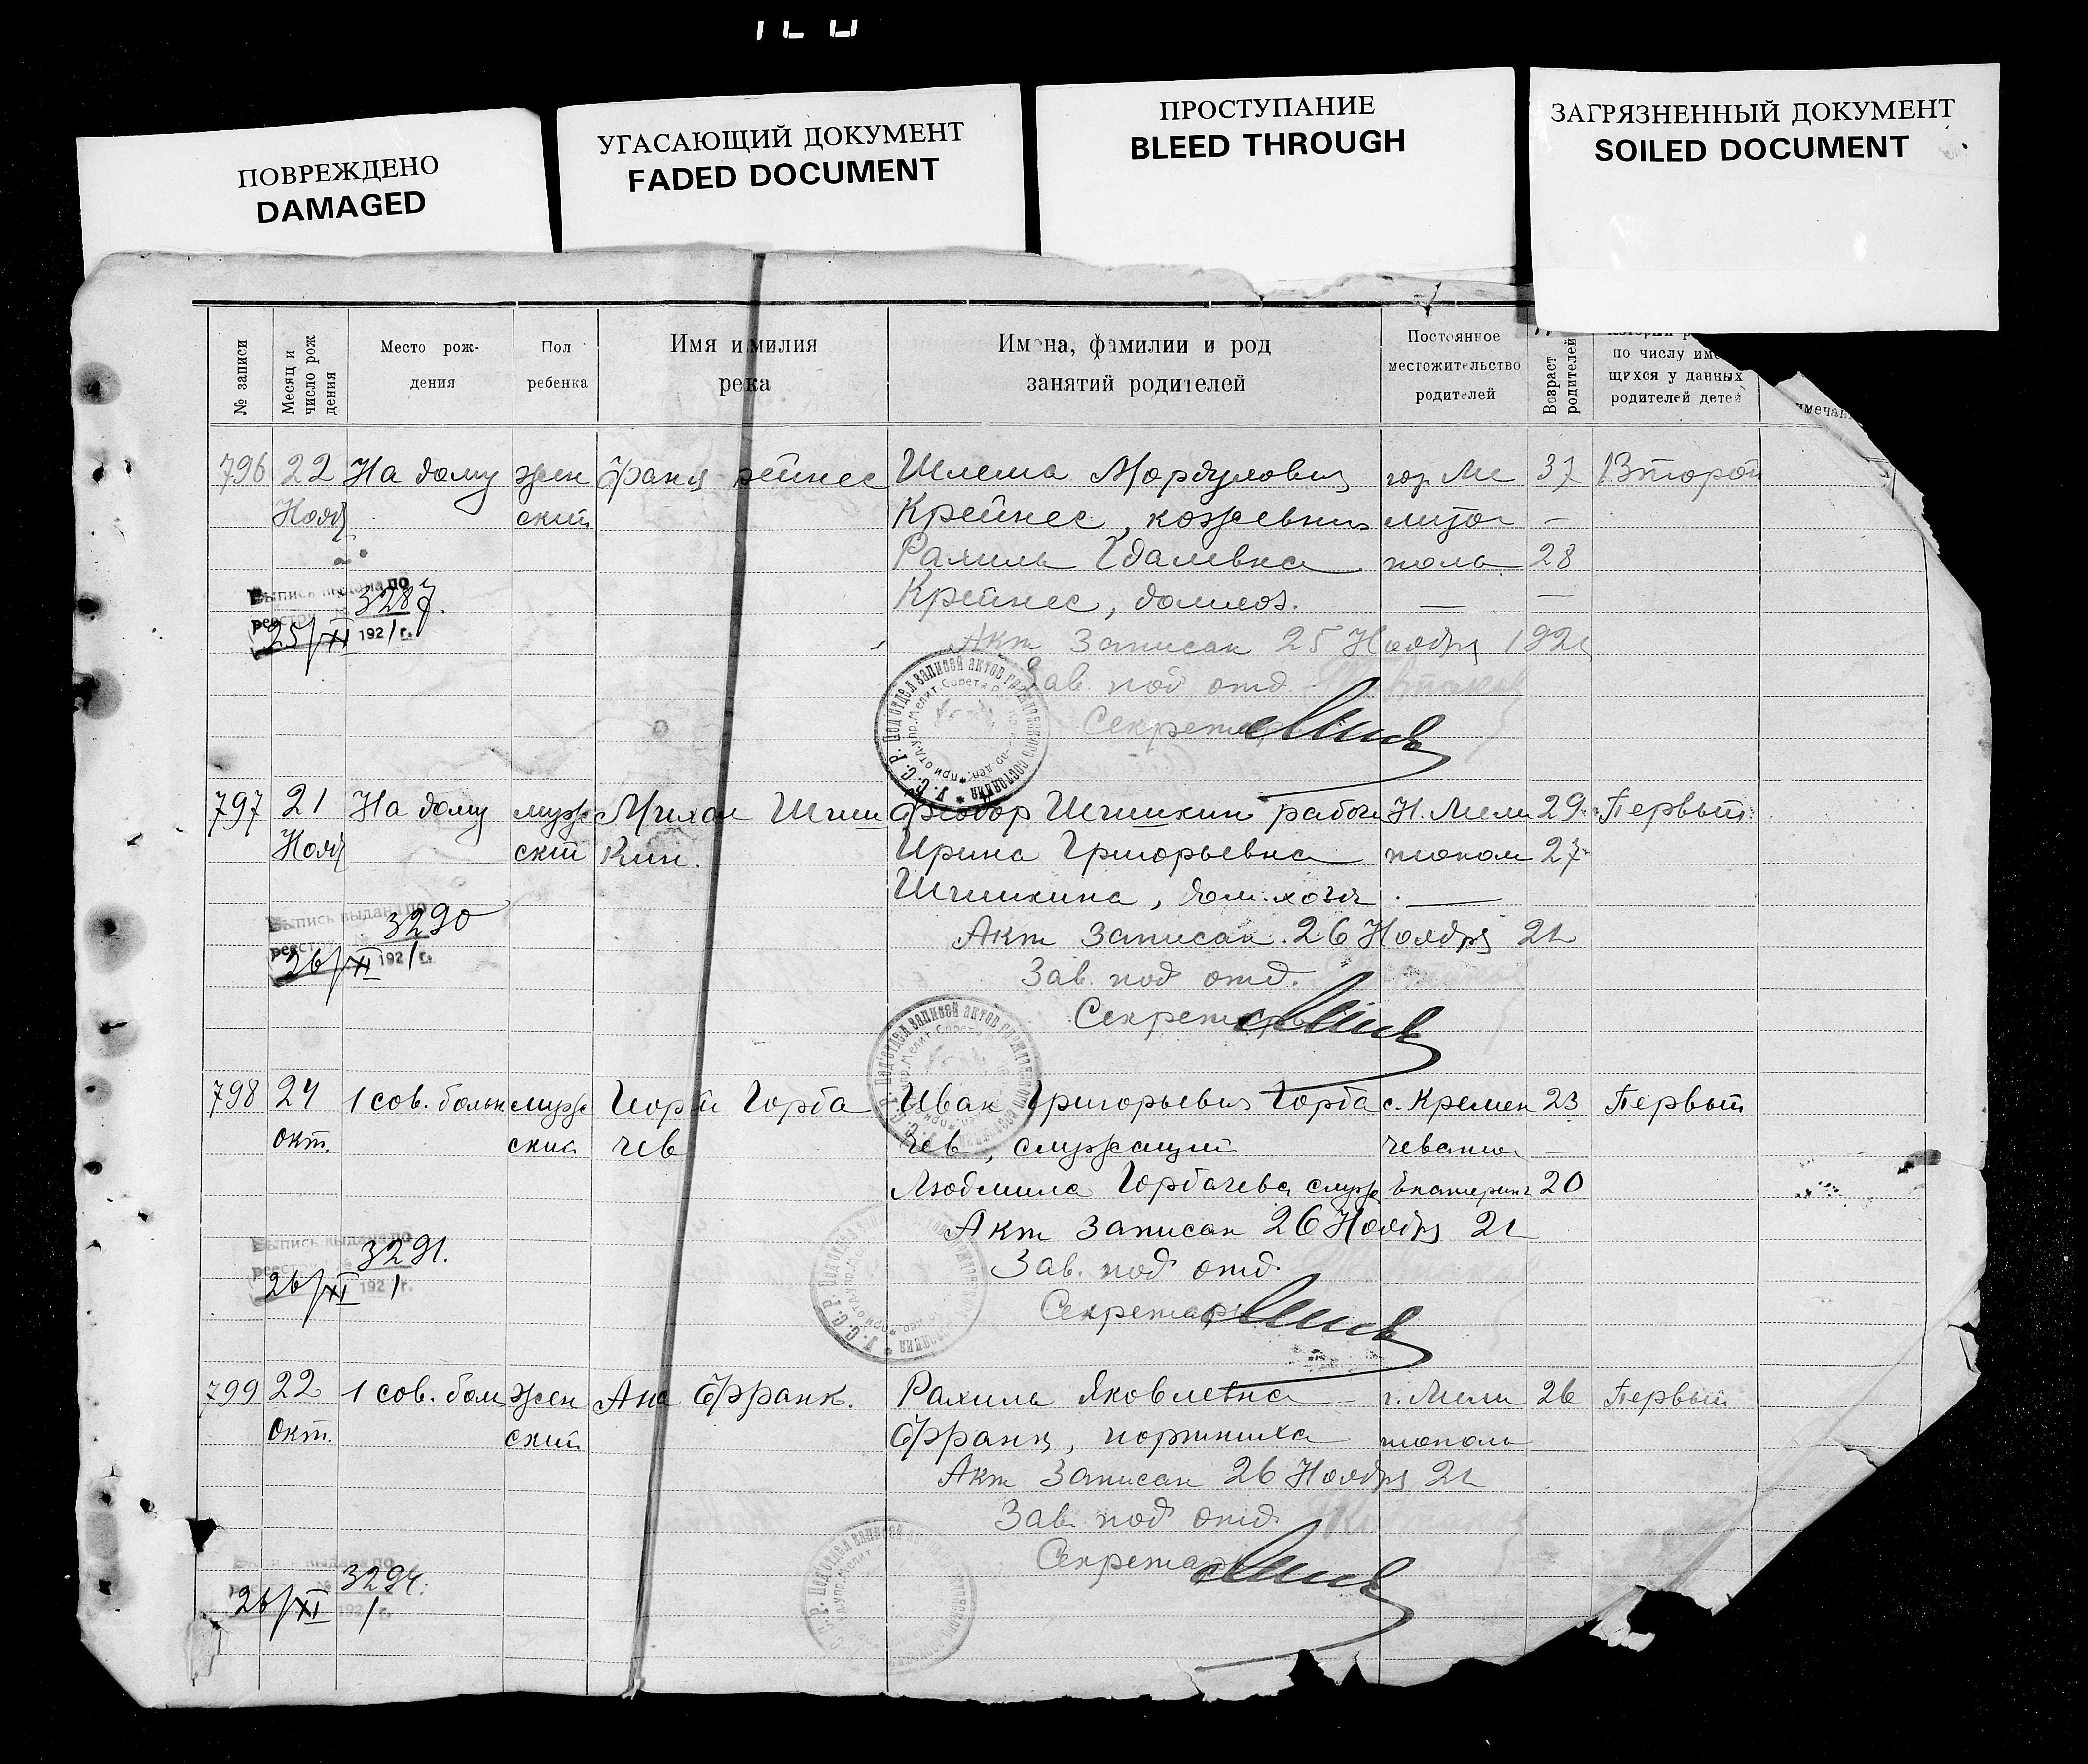 ПОВРЕЖДЕНО
DAMAGED
УГАСАЮЩИЙ ДОКУМЕНТ
FADED DOCUMENT
ПРОСТУПАНИЕ
BLEED THROUGH
ЗАГРЯЗНЕННЫЙ ДОКУМЕНТ
SOILED DOCUMENT
№ записи
Месяц и
число рож
дения
Место рож-
дения
Пол
ребенка
Имя и милия
река
Имена, фамилии и род
занятий родителей
Постоянное
местожительство
родителей
Возраст
родителей
по числу име
щихся у данных
родителей детей
796 22 На дому жен Фаня рейнес Шлема Мордухович гор. Ме 37 Второй
Нояб ский Крейнес, кожевник лито —
Рахиль Гдалевна поль 28
Крейнес, домхоз. — —
Выпись выдана по
реестру № 3287.
25/XI 1921 г.
Акт записан 25 Ноября 1921
Зав. под отд.
Секретарь
797 21 На дому муж Михаил Шиш Федор Шишкин рабоч Н. Мели 29 Первый
Нояб ский кин. Ирина Григорьевна тополь 27
Шишкина, дом.хозя —
Выпись выдана по
реестру № 3290
26/XI 1921 г.
Акт записан 26 Ноября 21
Зав. под отд.
Секретарь
798 24 1 сов. больн муж Георгий Горба Иван Григорьевич Горба с. Кремен 23 Первый
окт. ский чев чев, служащий —
Людмила Горбачева служ Екатерин 20
Выпись выдана по
реестру № 3291.
26/XI 1921 г.
Акт записан 26 Ноября 21
Зав. под отд.
Секретарь
799 22 1 сов. боль жен Ана Фрранк. Рахиль Яковлевна г. Мели 26 Первый
окт. ский портниха тополь
Акт записан 26 Ноября 21
Зав. под отд.
Секретарь
выдана по
№ 3294.
26/XI 1921 г.